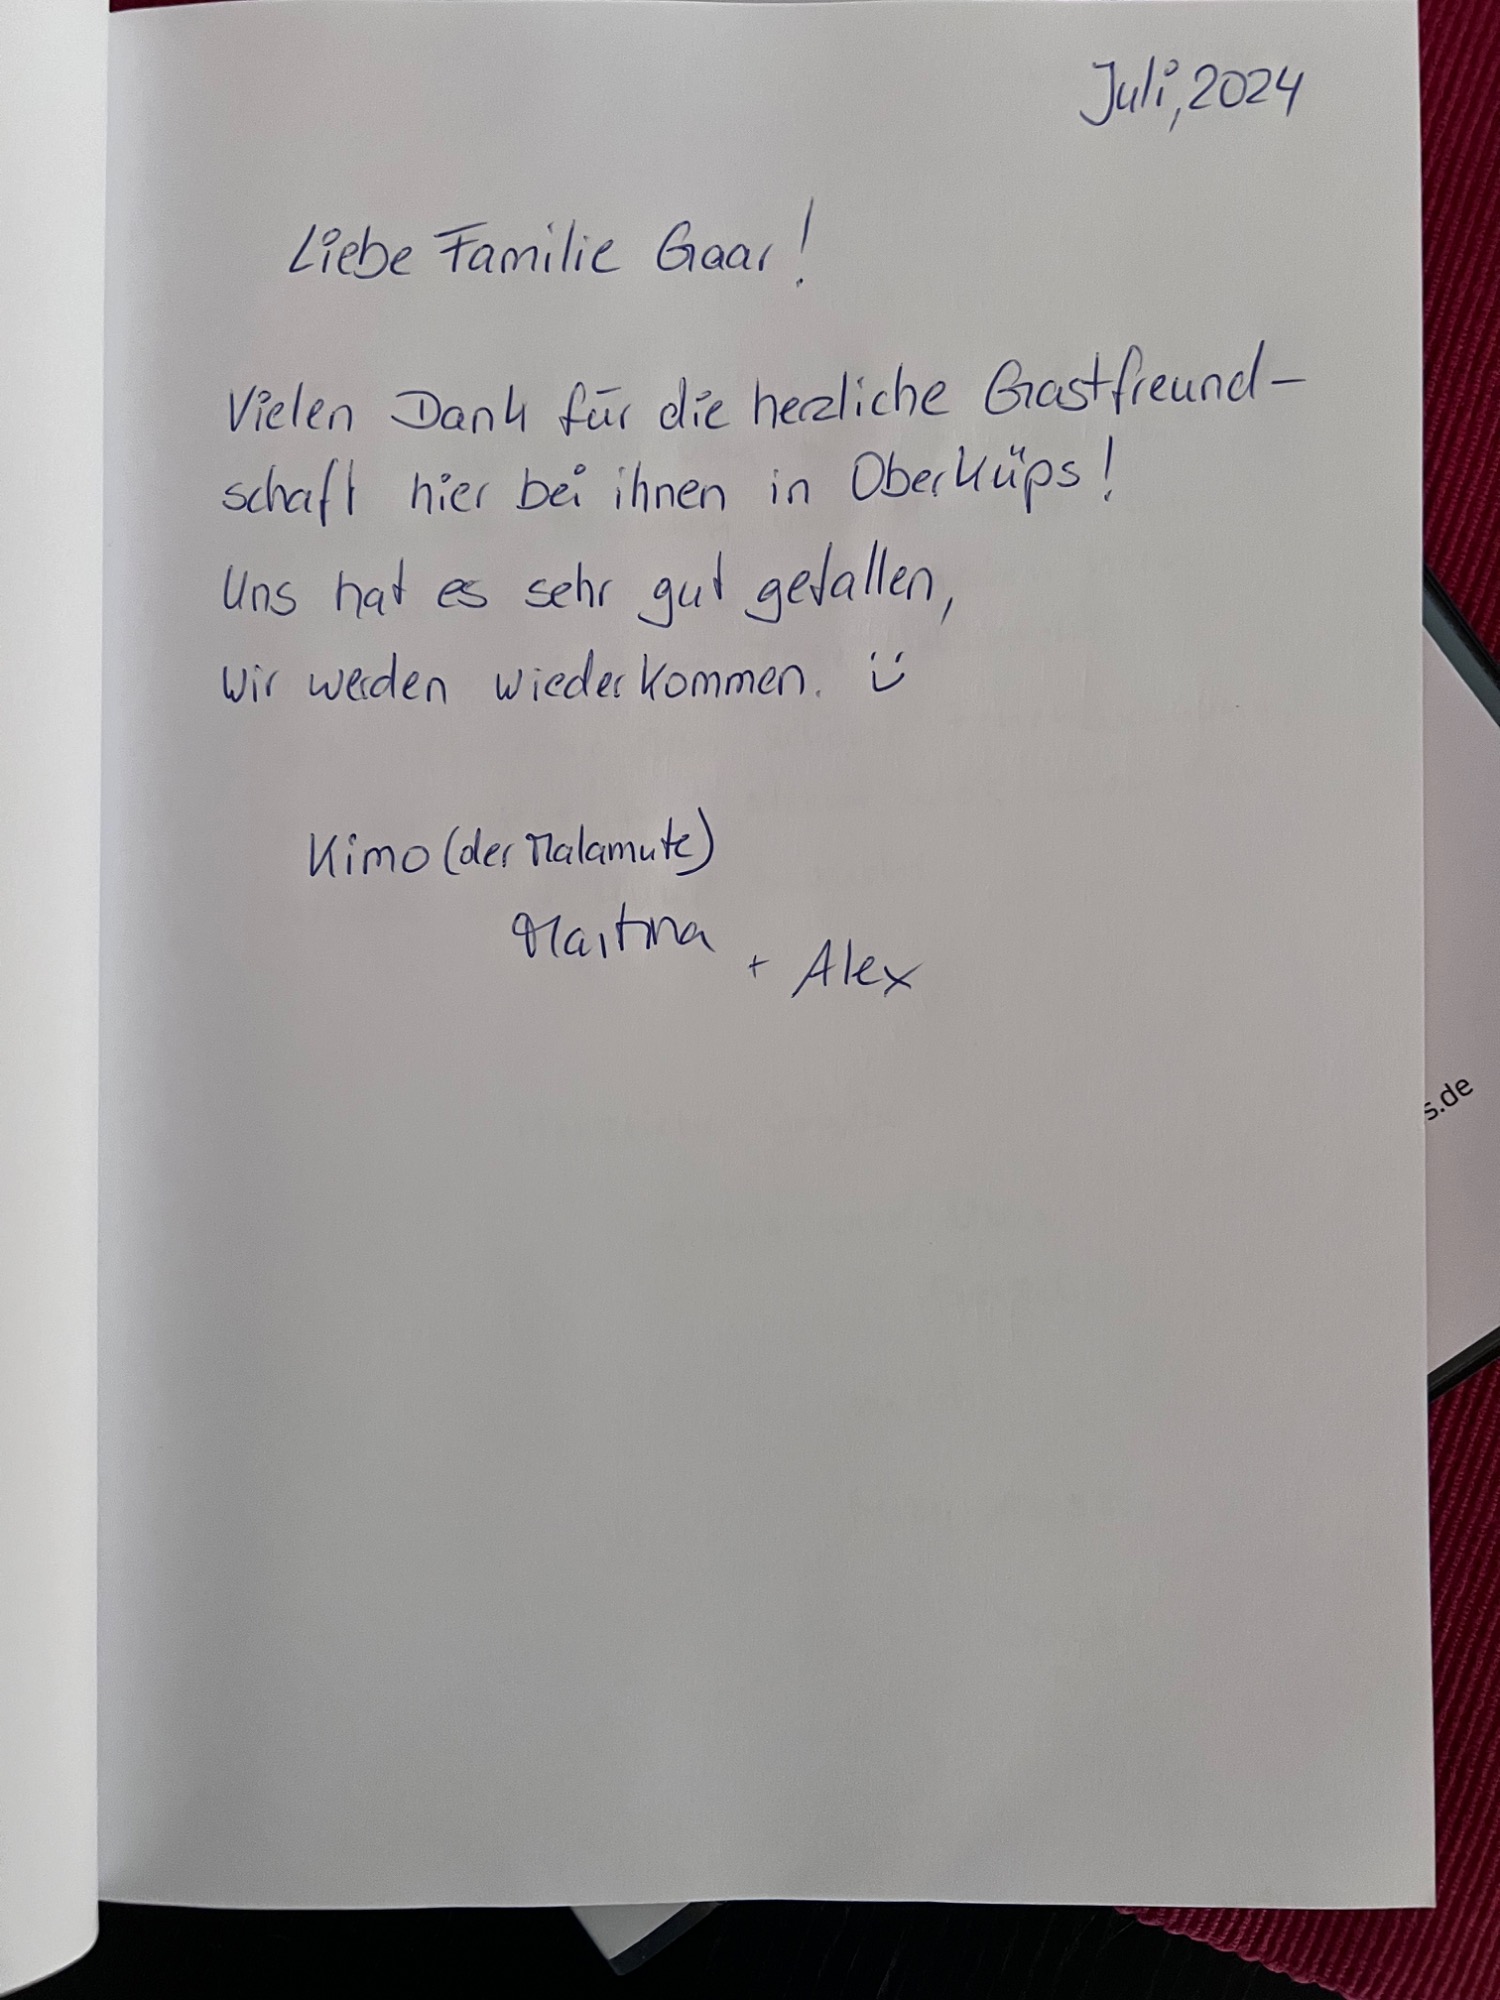 Juli, 2024
Liebe Familie Gaar!
Vielen Dank für die herzliche Gastfreund-
schaft hier bei ihnen in Oberküps!
Uns hat es sehr gut gefallen,
wir werden wiederkommen. Ü
Kimo (der Malamute)
Martina + Alex
s.de